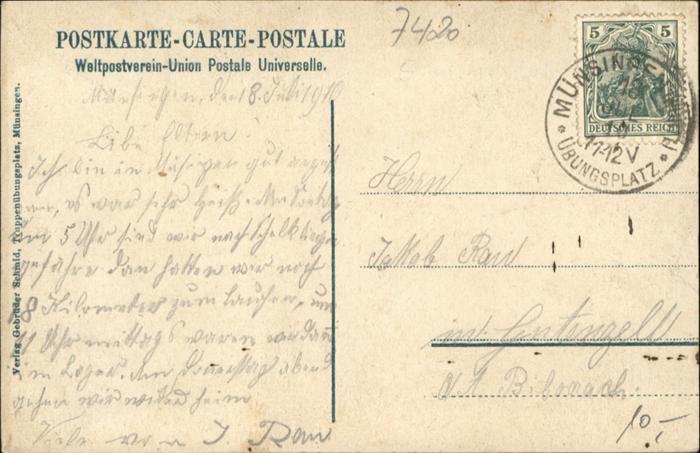 7420
POSTKARTE-CARTE-POSTALE
Weltpostverein-Union Postale Universelle.
5 5
DEUTSCHES REICH
MÜNSINGEN
11-12V
ÜBUNGSPLATZ
Verlag Gebrüder Schmid, Truppenübungsplatz, Münsingen.
Münsingen, den 18. Juli 1910
Liebe Eltern!
Ich bin in Münsingen gut
es war sehr heiß.
um 5 Uhr sind wir nach Schelklingen
gefahre dan hatten wir noch
18 Kilometer zum laufen, um
11 Uhr mittags waren wir dan
im Lager. Am Donnerstag abend
gehen wir wieder heim
Viele J. Rau
Herrn
Jakob Rau
in Gutenzell
O.A. Biberach.
10,-